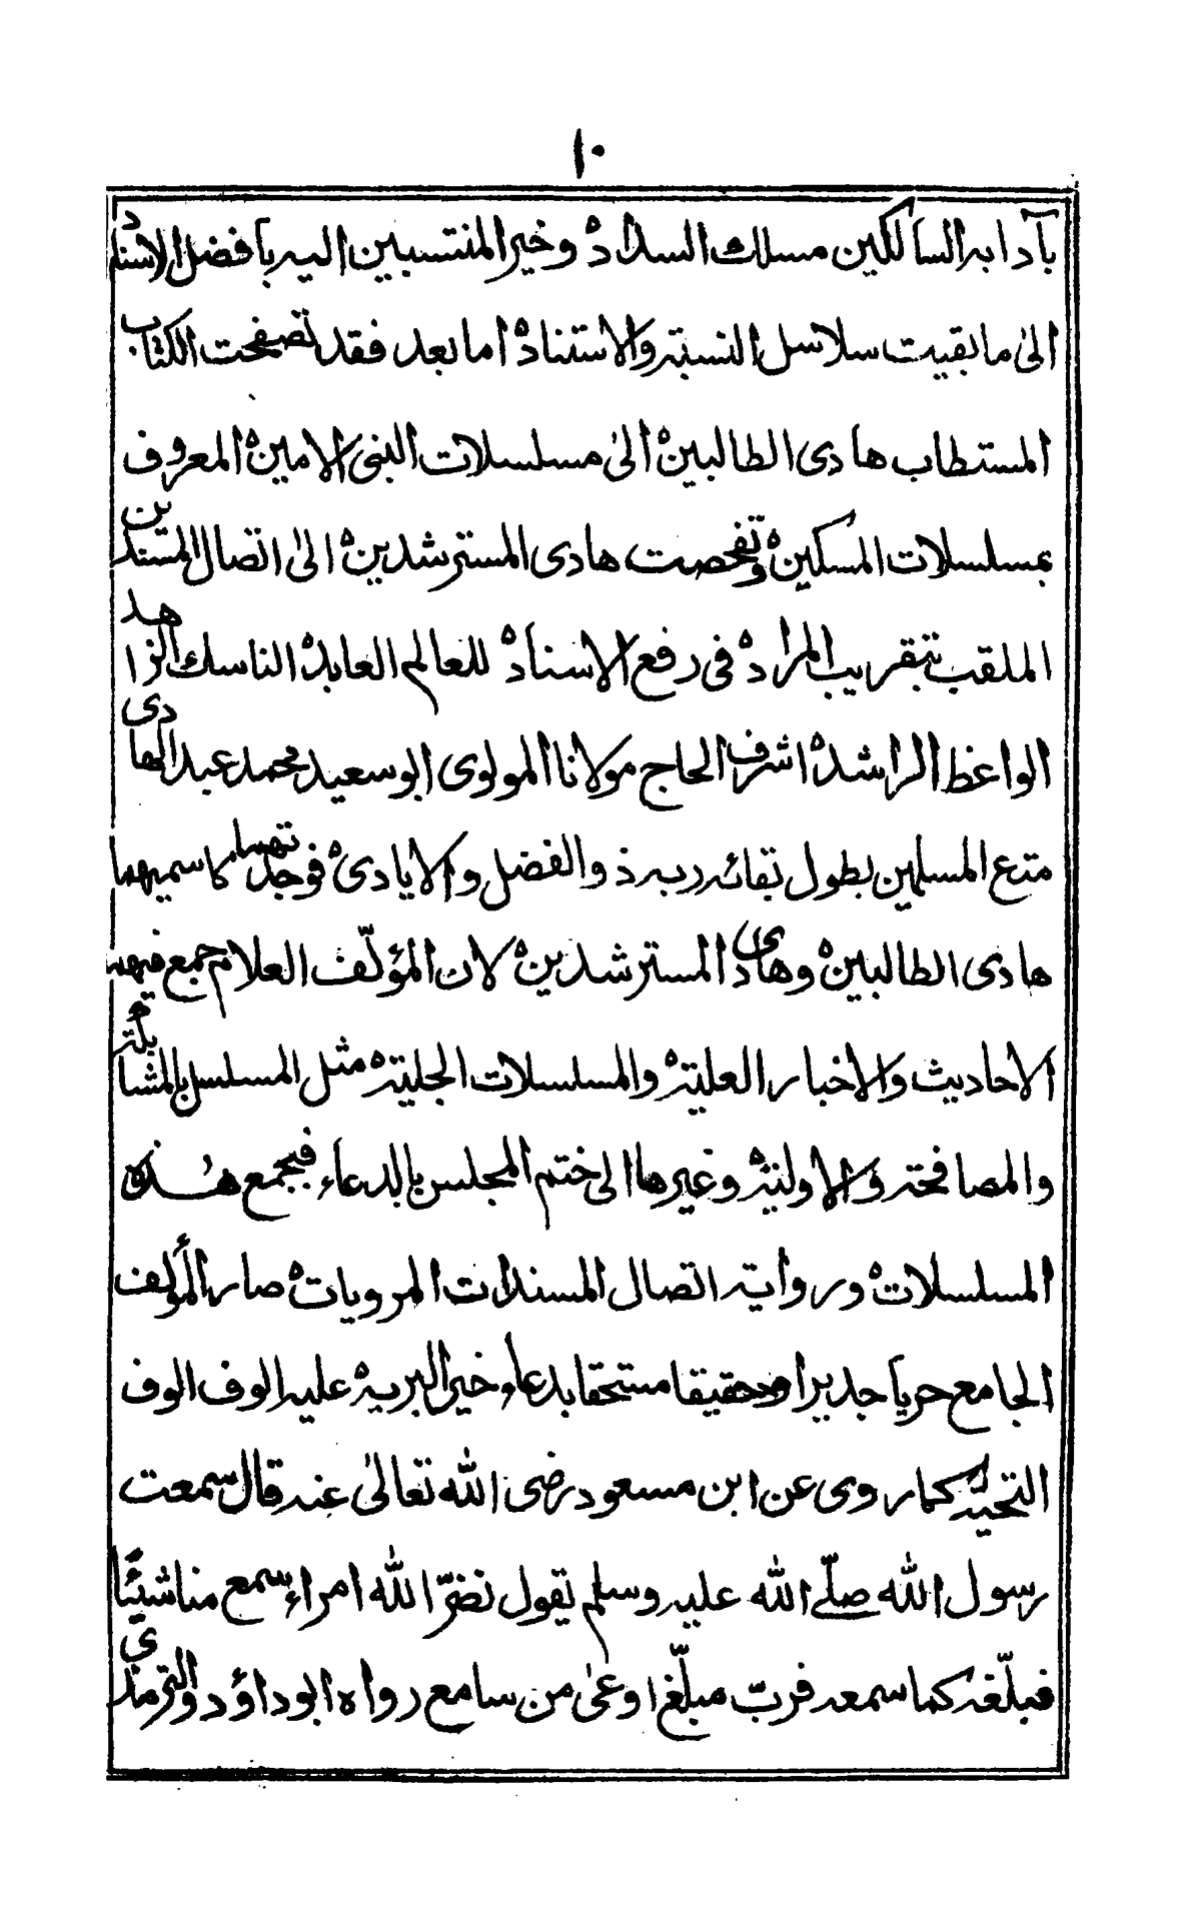 ١٠
بآدابه السالكين مسلك السداد ه وخير المنتسبين اليه بافضل الاسناد
الىٰ ما بقيت سلاسل النسبة والاستناد ه اما بعد فقد تصفحت الكتاب
المستطاب هادى الطالبين ه الىٰ مسلسلات النبى الامين ه المعروف
بمسلسلات المسكين ه وتفحصت هادى المسترشدين ه الىٰ اتصال المسندين
الملقب بتقريب المراد ه فى رفع الاسناد ه للعالم العابد ه الناسك الزاهد
الواعظ الراشد ه اشرف الحاج مولانا المولوى ابو سعيد محمد عبد الهادى
متع المسلمين بطول بقائه ربه ذو الفضل والايادى ه فوجدتهما كاسميهما
هادى الطالبين ه وهادى المسترشدين ه لان المؤلّف العلام جمع فيهما
الاحاديث والاخبار العلية ه والمسلسلات الجلية ه مثل المسلسل بالمشابكة
والمصافحة والاولية ه وغيرها الى ختم المجلس بالدعاء فبجمع هٰذه
المسلسلات ه ورواية اتصال المسندات المرويات ه صار المؤلف
الجامع حريا جديرا وحقيقا مستحقا بدعاء خير البريه ه عليه الوف الوف
التحيّة كما روى عن ابن مسعود رضى الله تعالىٰ عنه قال سمعت
رسول الله صلّے الله عليه وسلم يقول نضّر الله امراء سمع منا شيئًا
فبلّغه كما سمعه فربّ مبلّغ اوعىٰ من سامع رواه ابو داؤد والترمذى